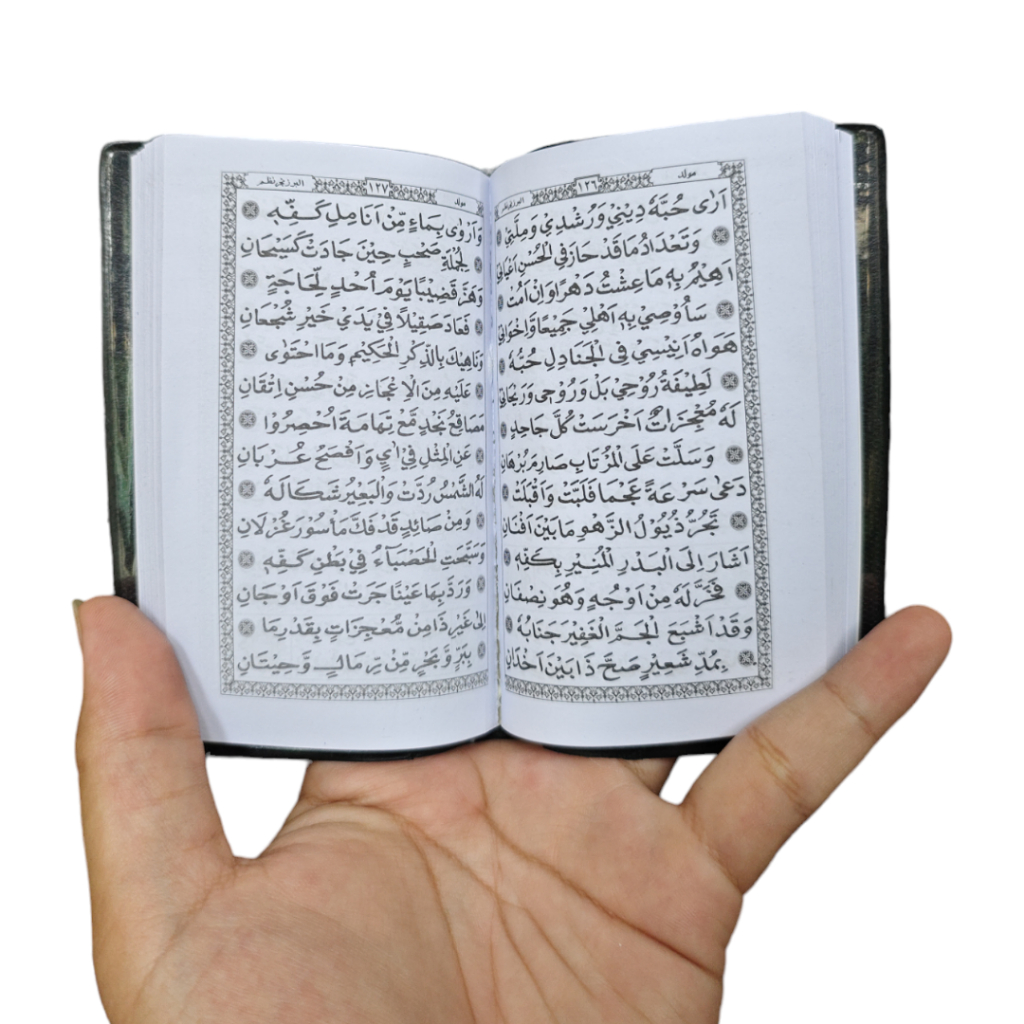 مولد
١٢٦
البرزنجي نظم
اَرٰى حُبَّهٗ دِيْنِيْ وَرُشْدِيْ وَمِلَّتِيْ
وَتَعْدَادُ مَا قَدْ حَازَ فِي الْحُسْنِ اَغْيَانِيْ
اَهِيْمُ بِهٖ مَا عِشْتُ دَهْرًا وَاِنْ اَمُتْ
سَاُوْصِيْ بِهٖ اَهْلِيْ جَمِيْعًا وَّاِخْوَانِيْ
هَوَاهُ اَنِيْسِيْ فِي الْجَنَادِلِ حُبُّهٗ
لَطِيْفَةُ رُوْحِيْ بَلْ وَرُوْحِيْ وَرَيْحَانِيْ
لَهٗ مُعْجِزَاتٌ اَخْرَسَتْ كُلَّ جَاحِدٍ
وَسَلَّتْ عَلَى الْمُرْتَابِ صَارِمَ بُرْهَانِ
دَعٰى سَرْعَةً عَجْمَا فَلَبَّتْ وَاَقْبَلَتْ
تَجُرُّ ذُيُوْلَ الزَّهْوِ مَا بَيْنَ اَفْنَانِ
اَشَارَ اِلَى الْبَدْرِ الْمُنِيْرِ بِكَفِّهٖ
فَخَرَّ لَهٗ مِنْ اَوْجِهٖ وَهُوَ نِصْفَانِ
وَقَدْ اَشْبَعَ الْجَمَّ الْغَفِيْرَ جَنَابُهٗ
بِمُدِّ شَعِيْرٍ صَحَّ ذَا بَيْنَ اَخْدَانِ
مولد
١٢٧
البرزنجي نظم
وَاَرْوٰى بِمَاءٍ مِّنْ اَنَامِلِ كَفِّهٖ
لِجُمْلَةِ صَحْبٍ حِيْنَ جَادَتْ كَسَيْحَانِ
وَهَزَّ قَضِيْبًا يَوْمَ اُحْدٍ لِّحَاجَةٍ
فَعَادَ صَقِيْلاً فِيْ يَدَيْ خَيْرِ شُجْعَانِ
وَنَاهِيْكَ بِالذِّكْرِ الْحَكِيْمِ وَمَا احْتَوٰى
عَلَيْهِ مِنَ الْاِعْجَازِ مِنْ حُسْنِ اِتْقَانِ
مَصَاقِعُ نَجْدٍ مَّعْ تِهَامَةَ اُحْصِرُوْا
عَنِ الْمِثْلِ فِيْ اٰيٍ وَاَفْصَحُ عُرْبَانِ
لَهُ الشَّمْسُ رُدَّتْ وَالْبَعِيْرُ شَكَالَهٗ
وَمِنْ صَائِدٍ قَدْ فَكَّ مَأْسُوْرَ غَزْلَانِ
وَسَبَّحَتِ الْحَصْبَاءُ فِيْ بَطْنِ كَفِّهٖ
وَرَدَّ بِهَا عَيْنًا جَرَتْ فَوْقَ اَوْجَانِ
اِلٰى غَيْرِ ذَا مِنْ مُّعْجِزَاتٍ بِقَدْرِ مَا
بِبَرٍّ وَّبَحْرٍ مِّنْ رِمَالٍ وَّحِيْتَانِ